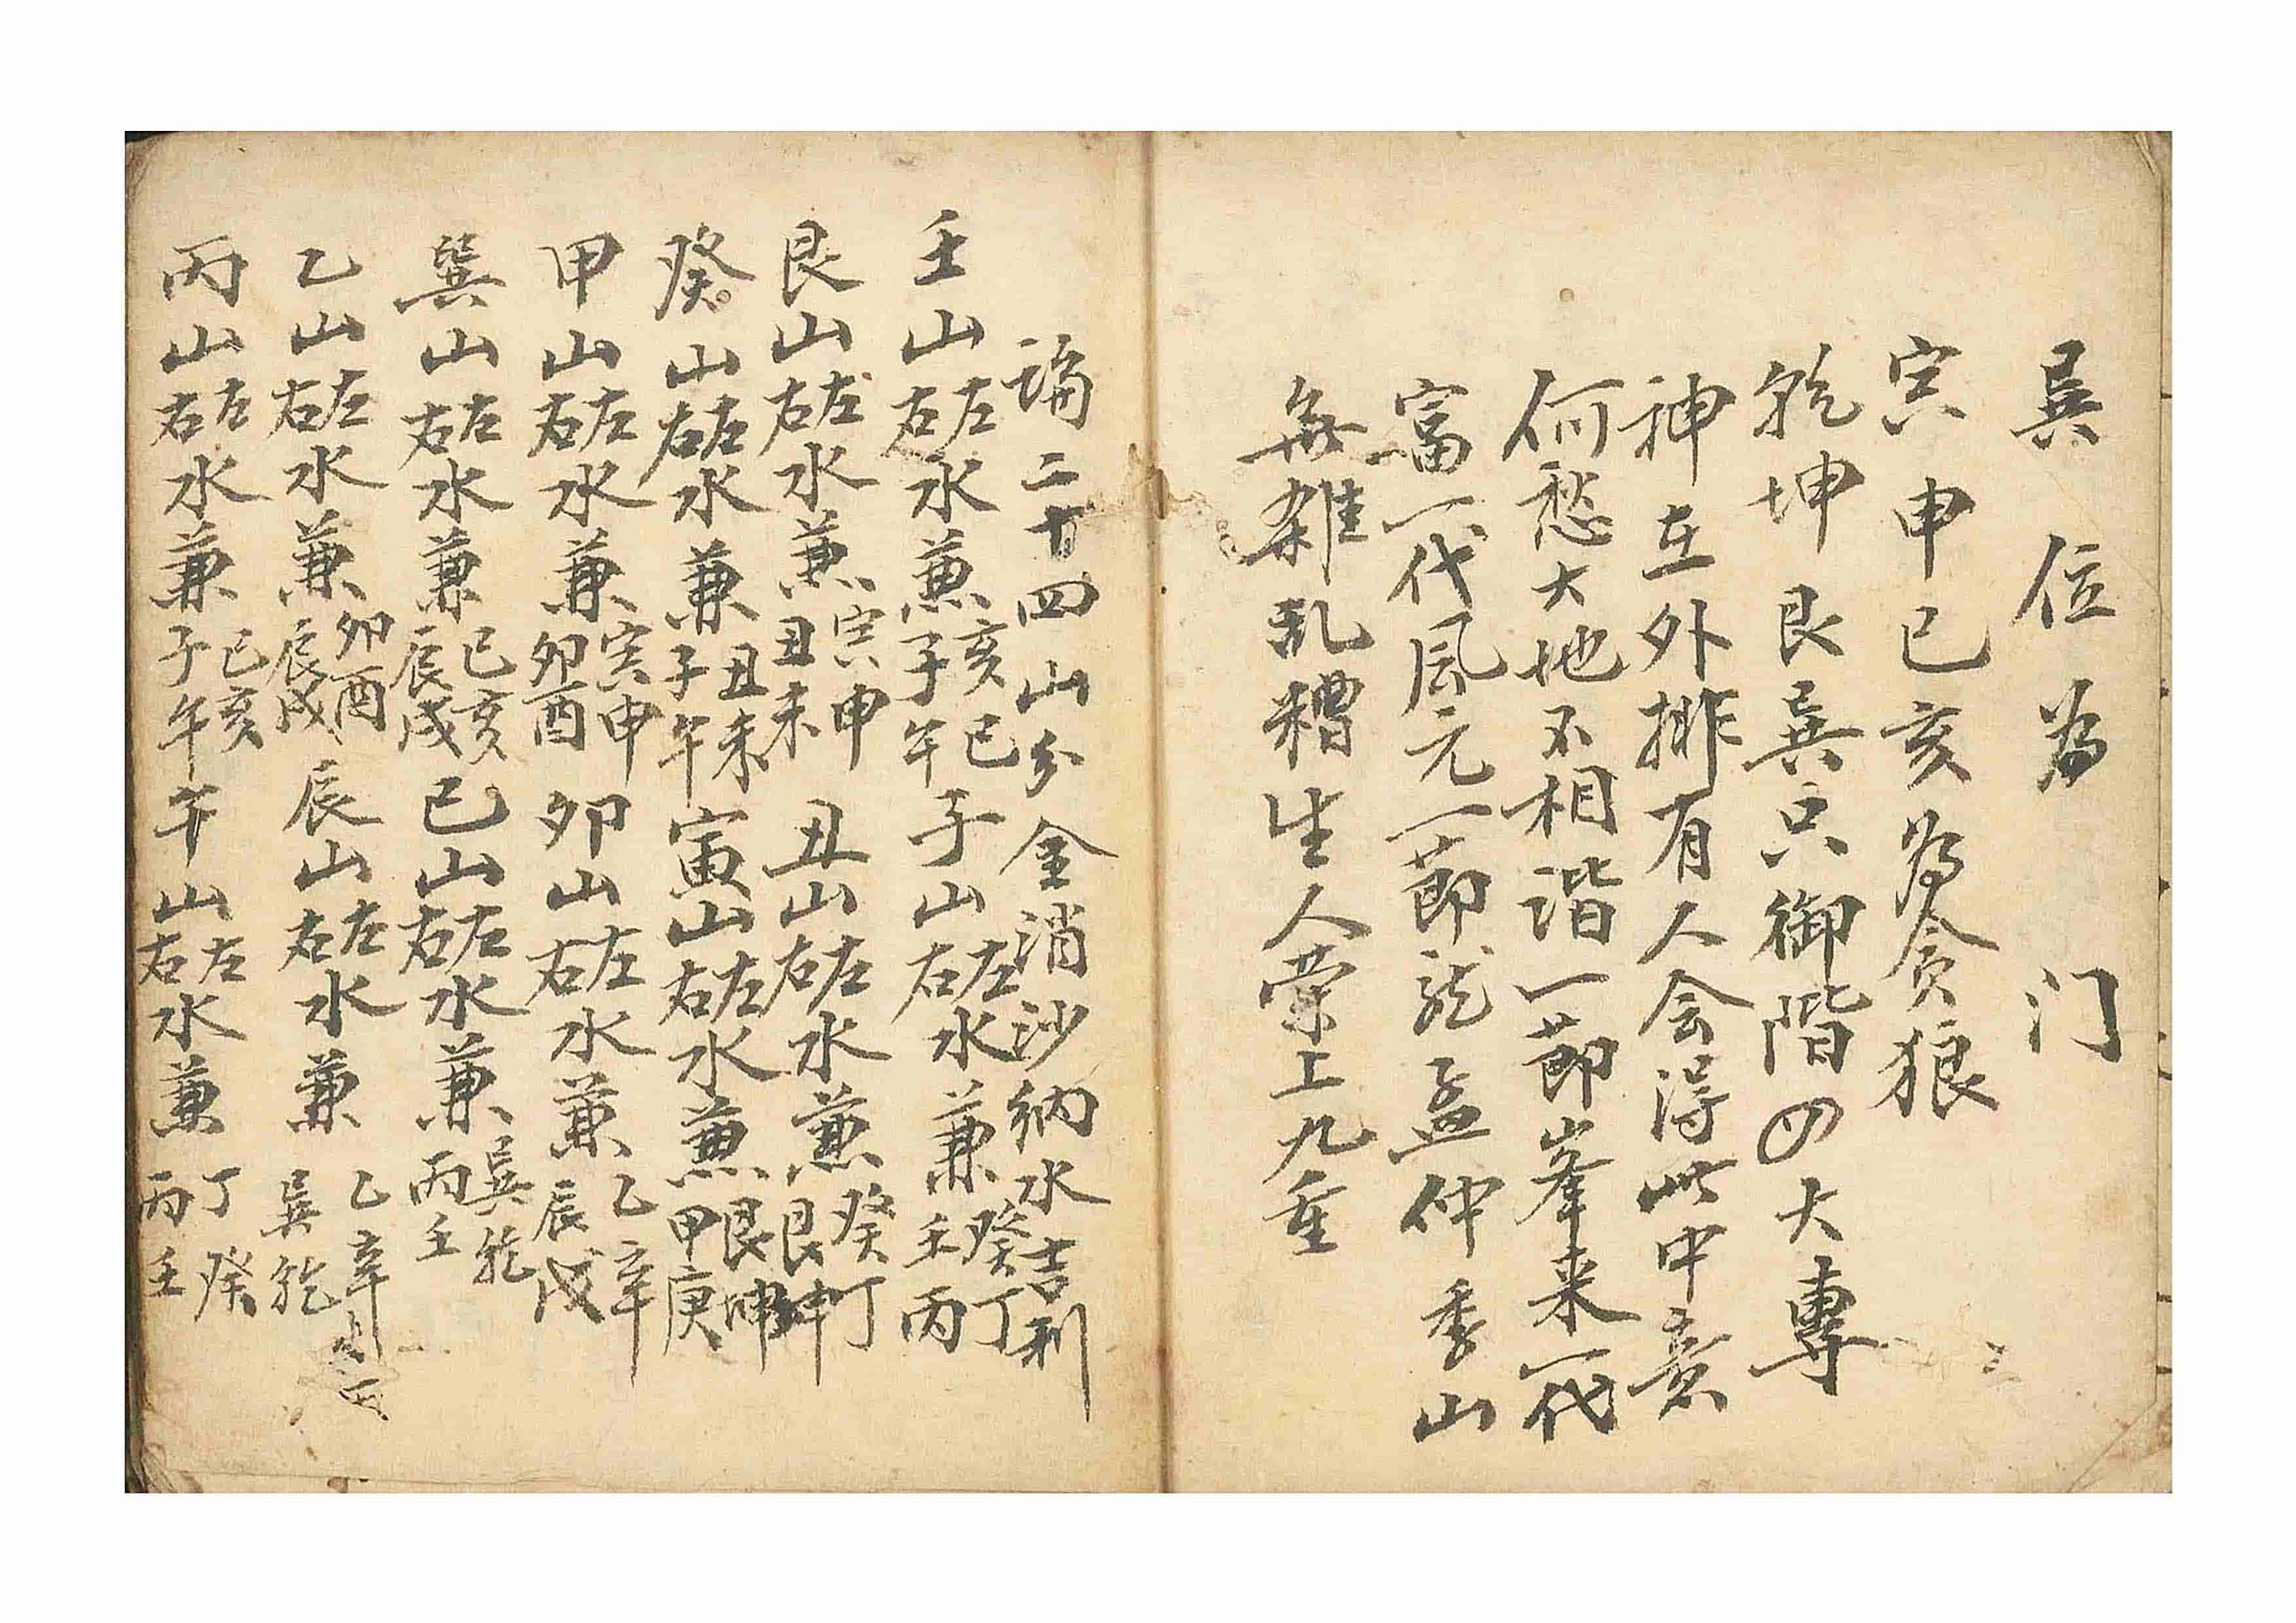 巽位為门
寅申巳亥为貪狼
乾坤艮巽只御階四大專
神在外排有人会得此中意
何愁大地不相谐一節峯来一代
富一代風元一節龍孟仲季山
無雜乱糟生人荣上九重
論二十四山分金消沙納水吉利
壬山左右水兼亥巳子午子山左右水兼癸丁壬丙
艮山左右水兼寅申丑未丑山左右水兼癸丁艮坤
癸山左右水兼丑未子午寅山左右水兼艮坤甲庚
甲山左右水兼寅申卯酉卯山左右水兼乙辛辰戌
巽山左右水兼巳亥辰戌巳山左右水兼巽乾丙壬
乙山左右水兼卯酉辰戌辰山左右水兼乙辛巽乾
丙山左右水兼巳亥子午午山左右水兼丁癸丙壬